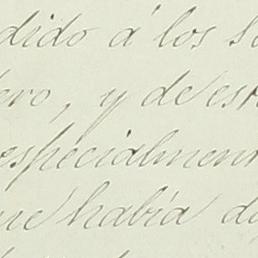 dido á los se
ero, y de est
especialment
ue había d